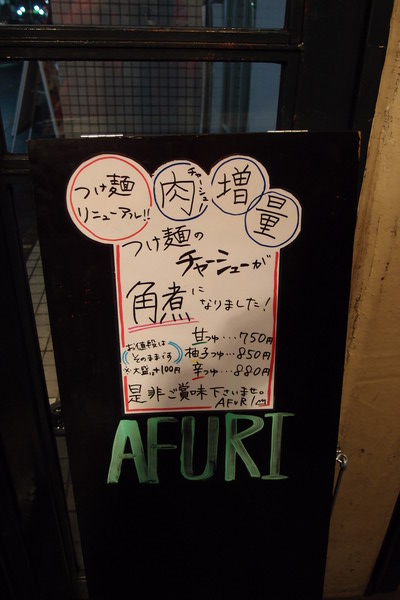 つけ麺
リニューアル!!
肉
チャーシュー
増
量
つけ麺の
チャーシューが
角煮に
なりました!
甘つゆ…750円
お値段は
そのままです
柚子つゆ…850円
※大盛+100円
辛つゆ…880円
是非ご賞味下さいませ。
AFURI
AFURI